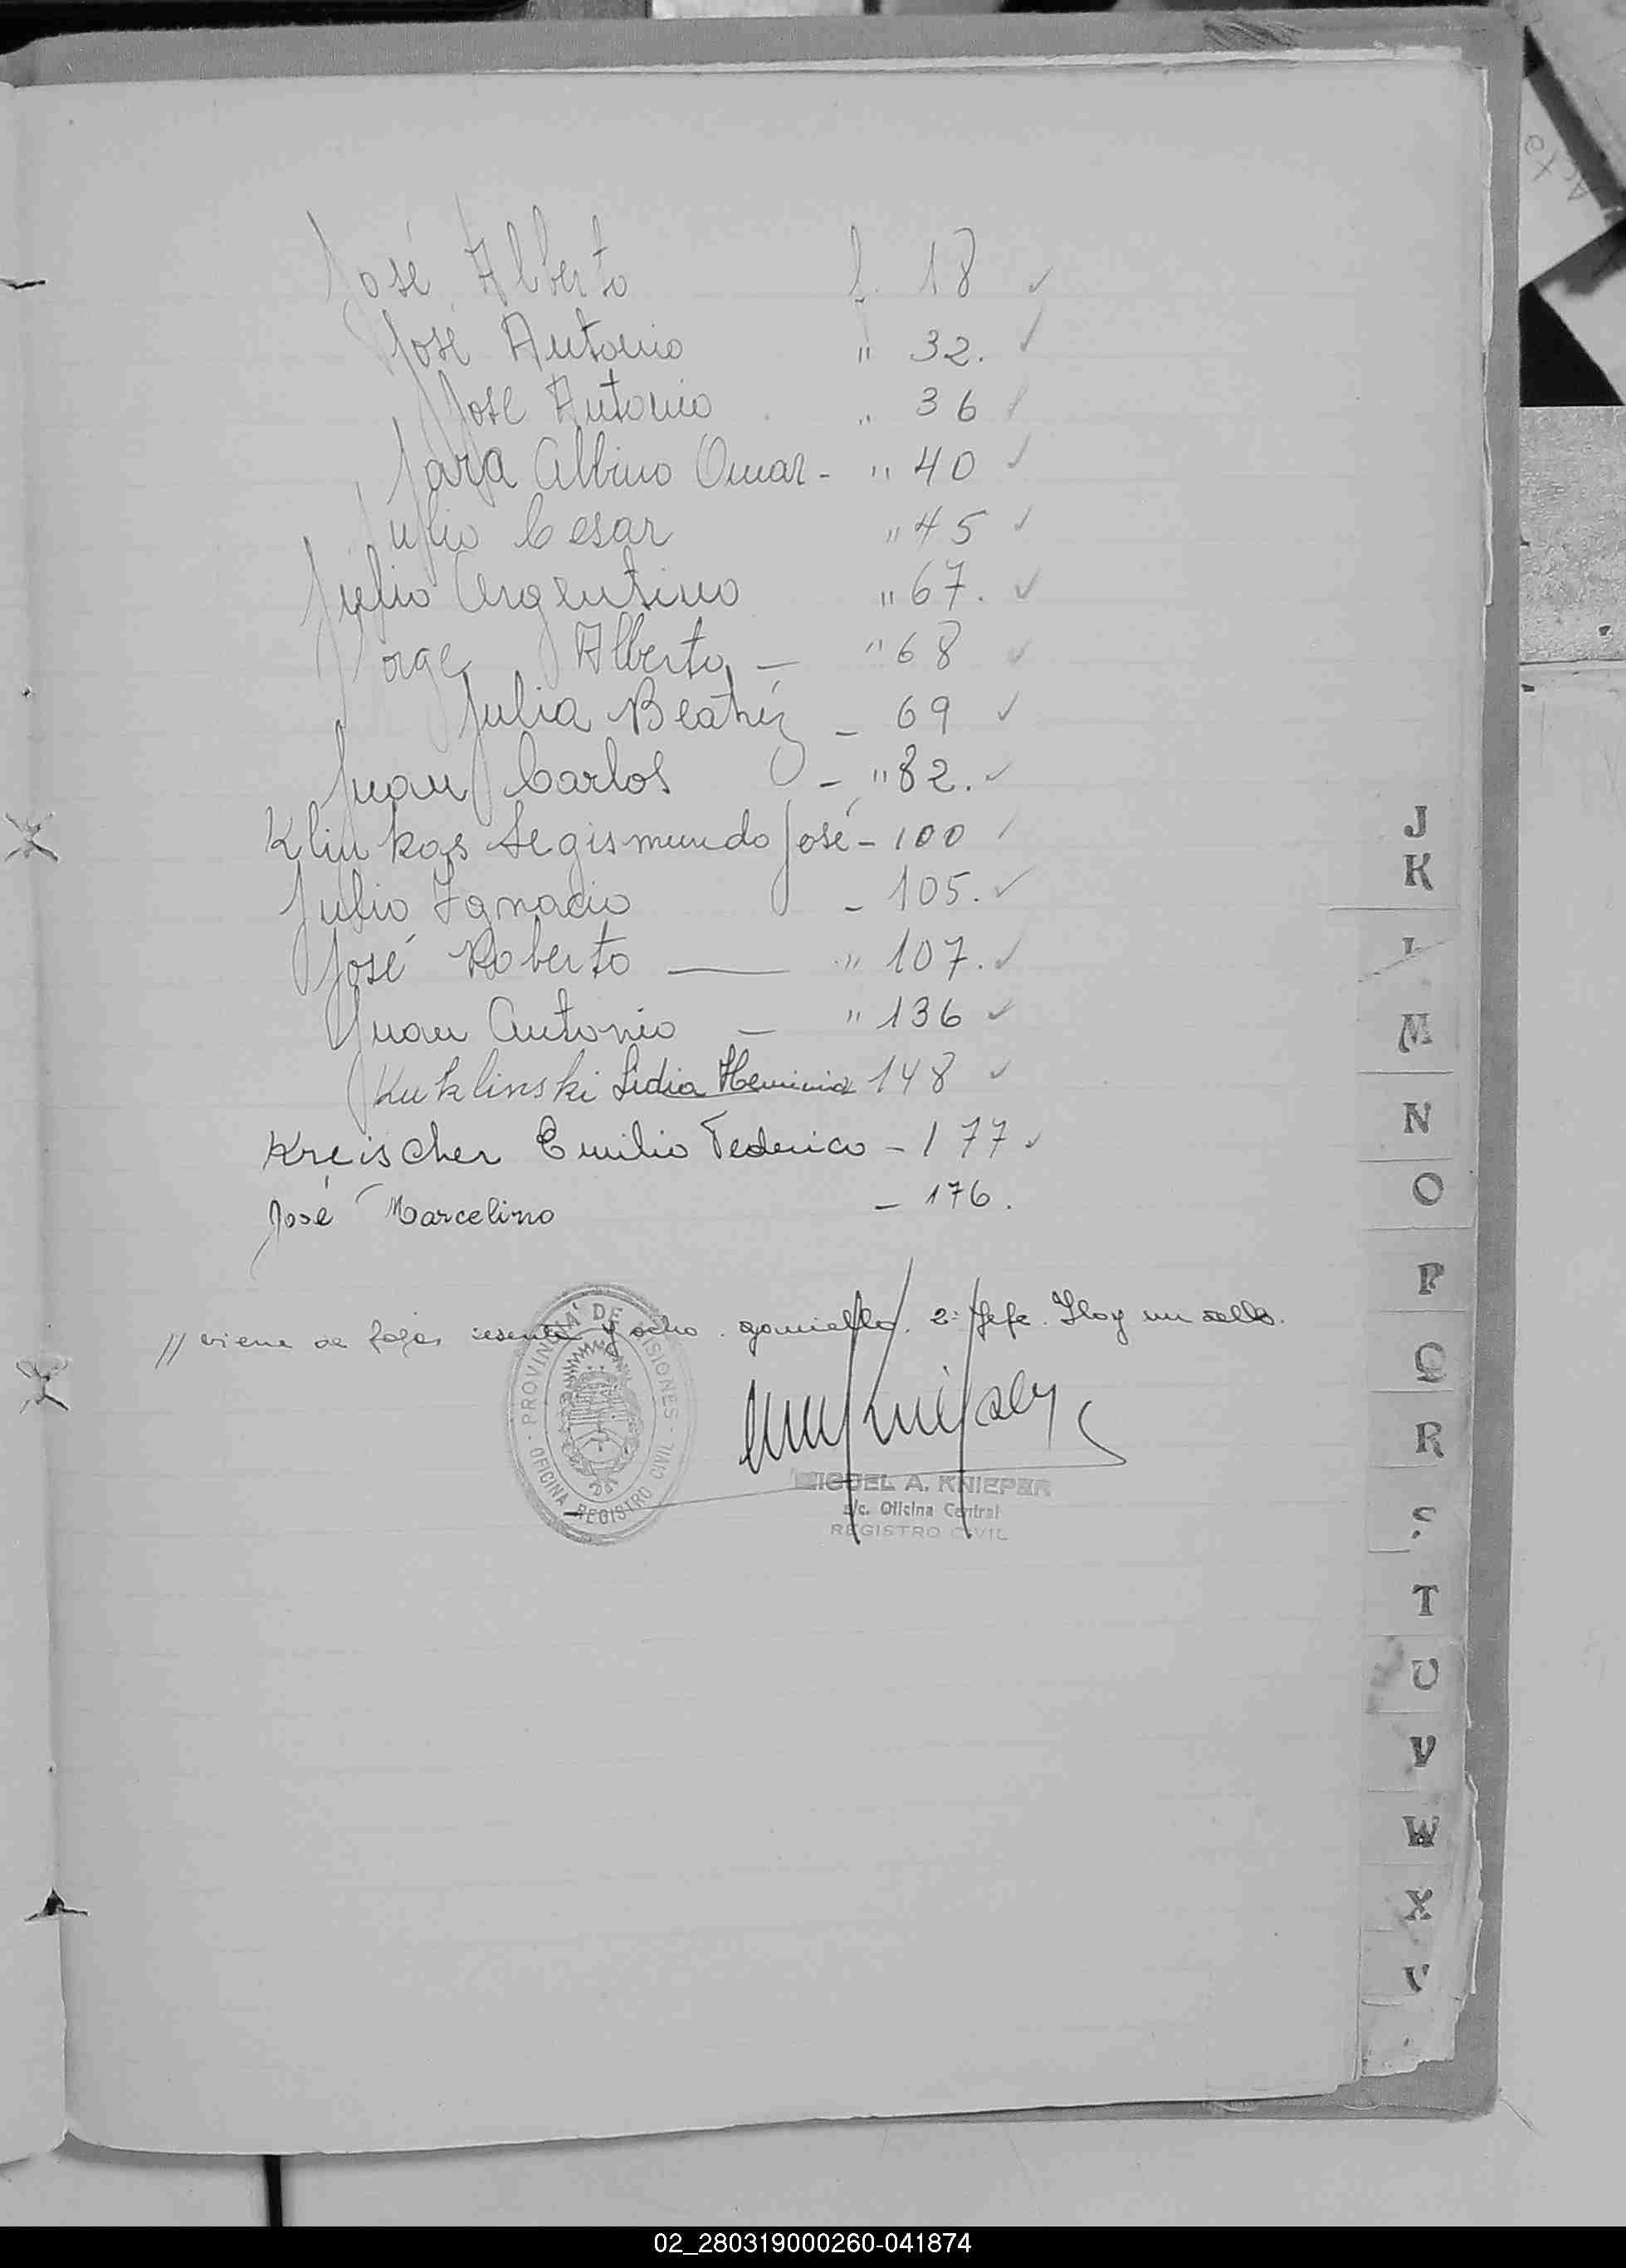 José Alberto f. 18 ✓
José Antonio " 32. ✓
José Antonio " 36 ✓
Jara Albino Omar - " 40 ✓
Julio Cesar " 45 ✓
Julio Argentino " 67. ✓
Jorge Alberto — " 68 ✓
Julia Beatriz - 69 ✓
Juan Carlos - " 82. ✓
Segismundo José - 100 ✓
Julio Ignacio - 105. ✓
José Roberto — " 107. ✓
Juan Antonio — " 136 ✓
Kuklinski Lidia Herminia 148 ✓
Kreischer Emilio Federico - 177 ✓
José Marcelino - 176.
// viene de fojas sesenta y ocho. 2º Jefe. Hay un sello.
PROVINCIA DE MISIONES
OFICINA REGISTRO CIVIL
MIGUEL A. KNIEPER
a/c. Oficina Central
REGISTRO CIVIL
J
K
L
M
N
O
P
Q
R
S
T
U
V
W
X
02_280319000260-041874